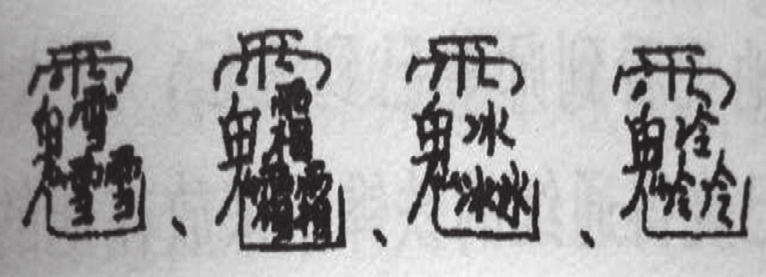 ⿱雨⿺鬼⿱雪⿰雪雪、⿱雨⿺鬼⿱霜⿰霜霜、⿱雨⿺鬼⿱冰⿰冰冰、⿱雨⿺鬼⿱冷⿰冷冷